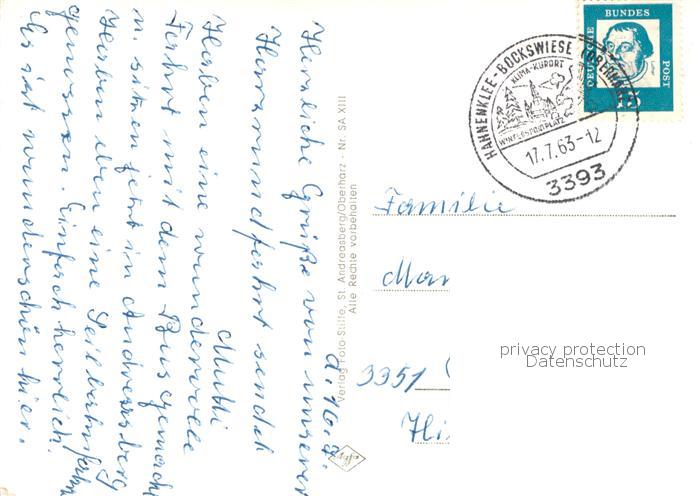 d. 16.7.
Herrliche Grüße von unserer
Harzrundfahrt sendet
Mutti
Haben eine wundervolle
Fahrt mit dem Bus gemacht
u. sitzen jetzt in Andreasberg
Haben eben eine Seilbahnfahrt
genossen. Einfach herrlich.
Es ist wunderschön hier.
Verlag Foto-Stille, St. Andreasberg/Oberharz - Nr. SA XIII
Alle Rechte vorbehalten
DEUTSCHE BUNDES POST
15
HAHNENKLEE-BOCKSWIESE (OBERHARZ)
KLIMA-KURORT
WINTERSPORTPLATZ
17.7.63-12
3393
Familie
3351
privacy protection
Datenschutz